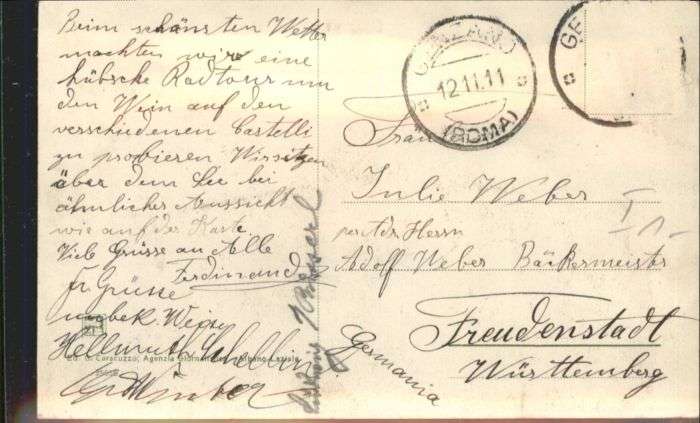 Beim schönsten Wetter
machten wir eine
hübsche Radtour um
den Wein auf den
verschiedenen Castelli
zu probieren Wir sitzen
über dem See bei
ähnlicher Aussicht
wie auf der Karte
Viele Grüsse an Alle
Ferdinand
Grüsse
Hellmuth Schelling
Ed. G. Caracuzzo, Agenzia Albano Laziale
GENZANO
12.11.11
(ROMA)
GE
Frau
Julie Weber
per Adr. Herrn
Adolf Weber Bäckermeister
Freudenstadt
Württemberg
Germania